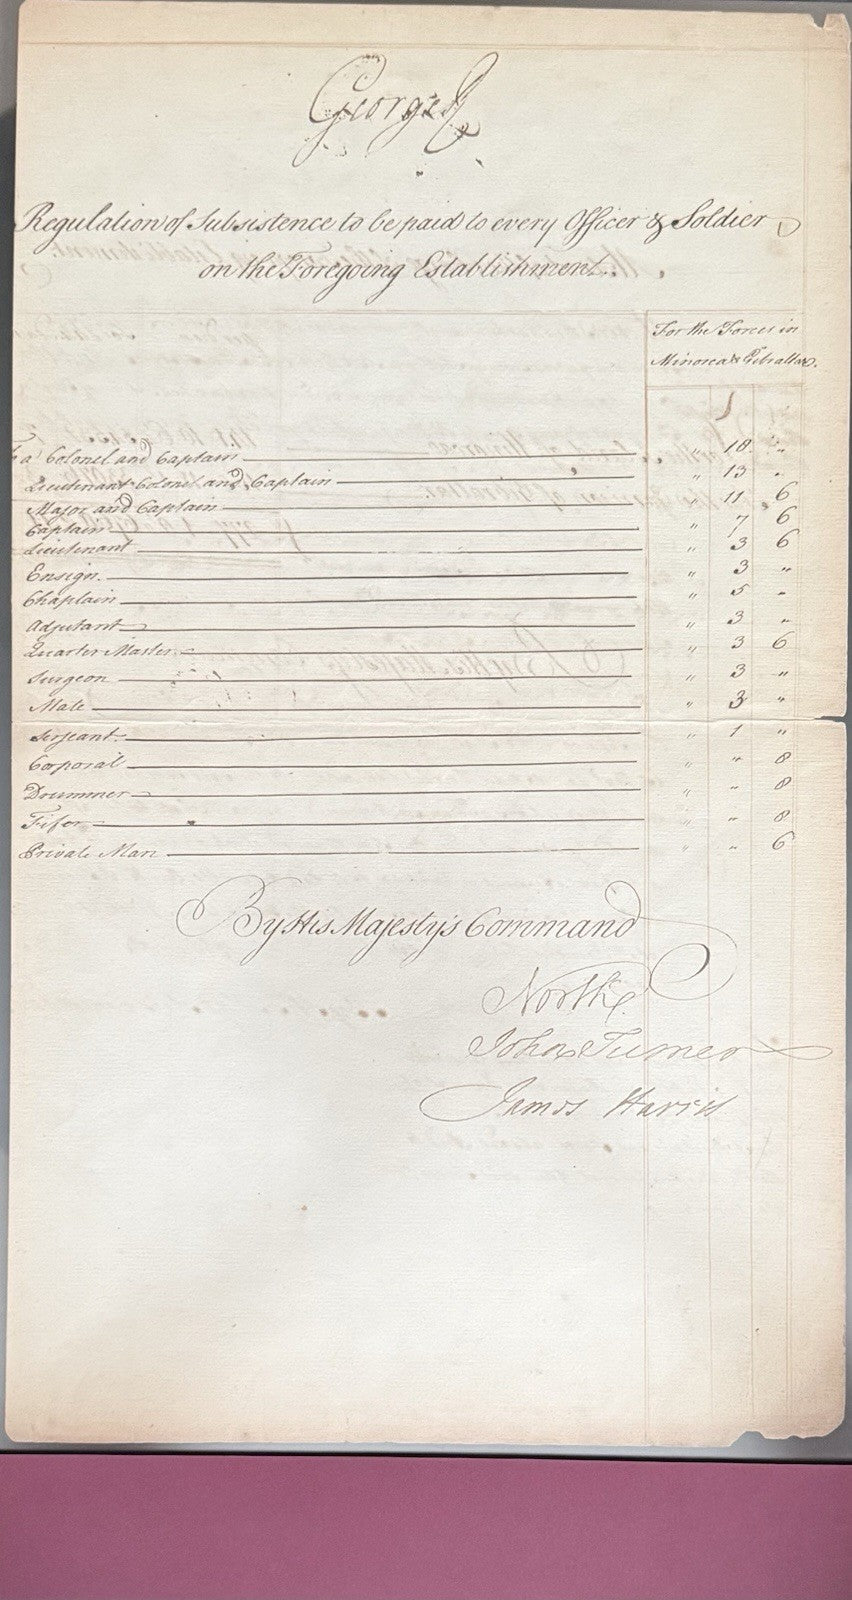 George R
Regulation of Subsistence to be paid to every Officer & Soldier
on the Foregoing Establishment.
For the Forces in
Minorca & Gibraltar.
To a Colonel and Captain " 18 "
Lieutenant Colonel and Captain " 13 "
Major and Captain " 11 6
Captain " 7 6
Lieutenant " 3 6
Ensign " 3 "
Chaplain " 5 "
Adjutant " 3 "
Quarter Master " 3 6
Surgeon " 3 "
Mate " 3 "
Serjeant " 1 "
Corporal " " 8
Drummer " " 8
Fifer " " 8
Private Man " " 6
By His Majesty's Command
North
John Turner
James Harris